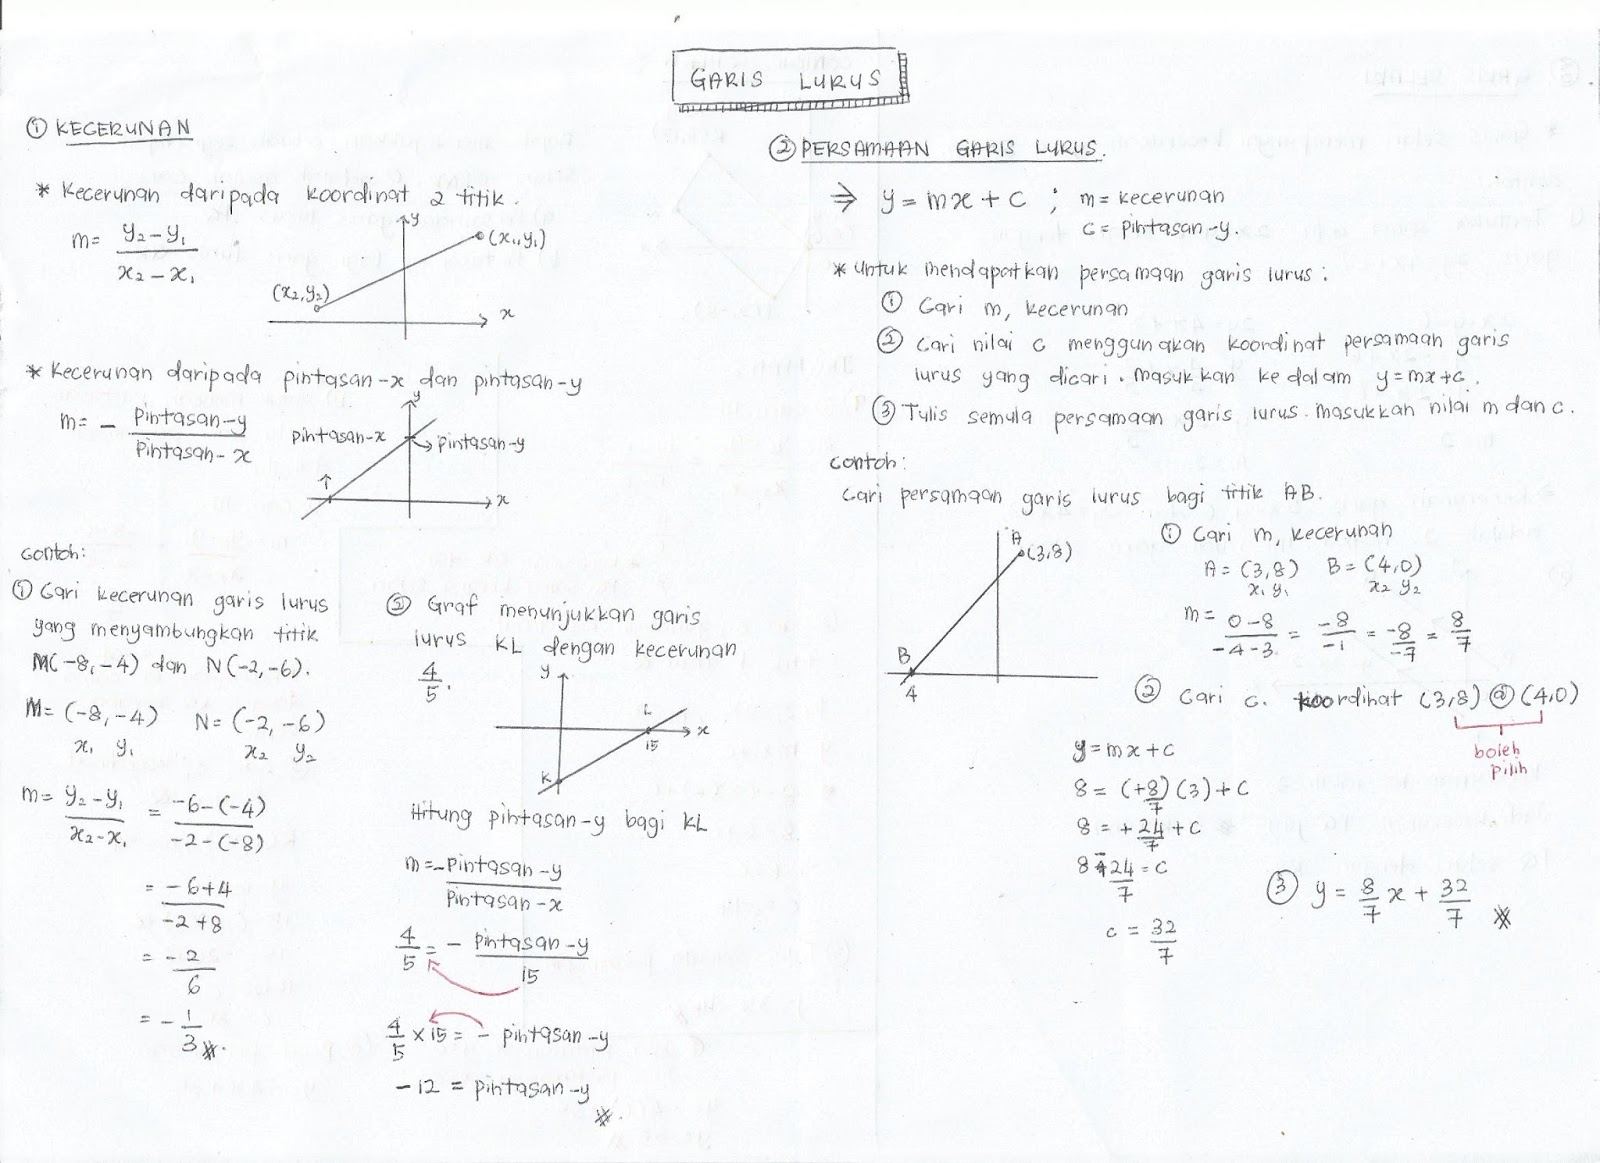 GARIS LURUS
① KECERUNAN
* Kecerunan daripada koordinat 2 titik.
m = y₂ - y₁ / x₂ - x₁
y
(x₁, y₁)
(x₂, y₂)
x
* Kecerunan daripada pintasan-x dan pintasan-y
m = - Pintasan-y / Pintasan-x
y
pintasan-x
pintasan-y
x
Contoh:
① Cari kecerunan garis lurus
yang menyambungkan titik
M(-8,-4) dan N(-2,-6).
M = (-8, -4) N = (-2, -6)
x₁ y₁ x₂ y₂
m = y₂ - y₁ / x₂ - x₁ = -6-(-4) / -2-(-8)
= -6+4 / -2+8
= -2 / 6
= - 1 / 3 *.
② Graf menunjukkan garis
lurus KL dengan kecerunan
4/5.
y
L
x
15
K
Hitung pintasan-y bagi KL
m = - pintasan-y / pintasan-x
4/5 = - pintasan-y / 15
4/5 × 15 = - pintasan-y
-12 = pintasan-y *.
② PERSAMAAN GARIS LURUS.
⇒ y = mx + c ; m = kecerunan
c = pintasan-y.
* Untuk mendapatkan persamaan garis lurus:
① Cari m, kecerunan
② Cari nilai c menggunakan koordinat persamaan garis
lurus yang dicari. Masukkan ke dalam y=mx+c.
③ Tulis semula persamaan garis lurus. Masukkan nilai m dan c.
Contoh:
Cari persamaan garis lurus bagi titik AB.
A
(3,8)
B
4
① Cari m, kecerunan
A = (3,8) B = (4,0)
x₁ y₁ x₂ y₂
m = 0-8 / -4-3 = -8 / -1 = -8 / -7 = 8 / 7
② Cari c. Koordinat (3,8) @ (4,0)
boleh
pilih
y = mx + c
8 = (+8/7)(3) + c
8 = +24/7 + c
8 - 24/7 = c
c = 32/7
③ y = 8/7 x + 32/7 *